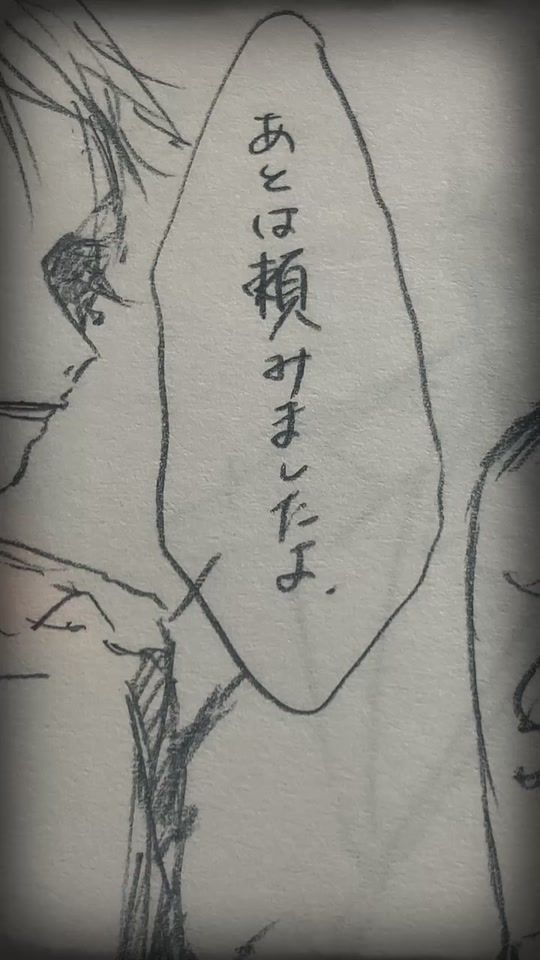 あとは頼みましたよ.